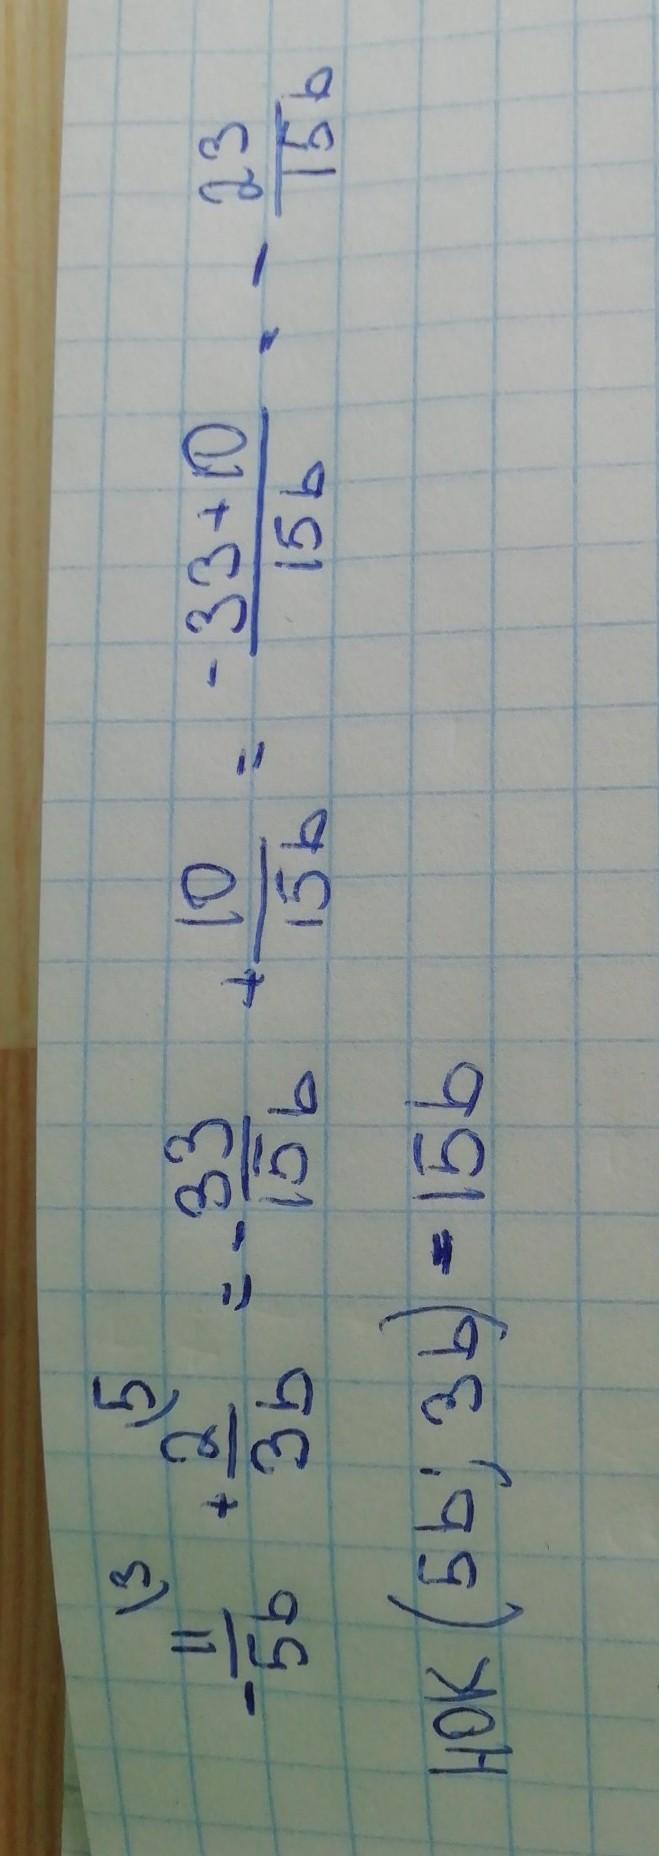 - 11/5b \3 + 2/3b \5 = - 33/15b + 10/15b = -33+10/15b = - 23/15b
НОК (5b; 3b) = 15b